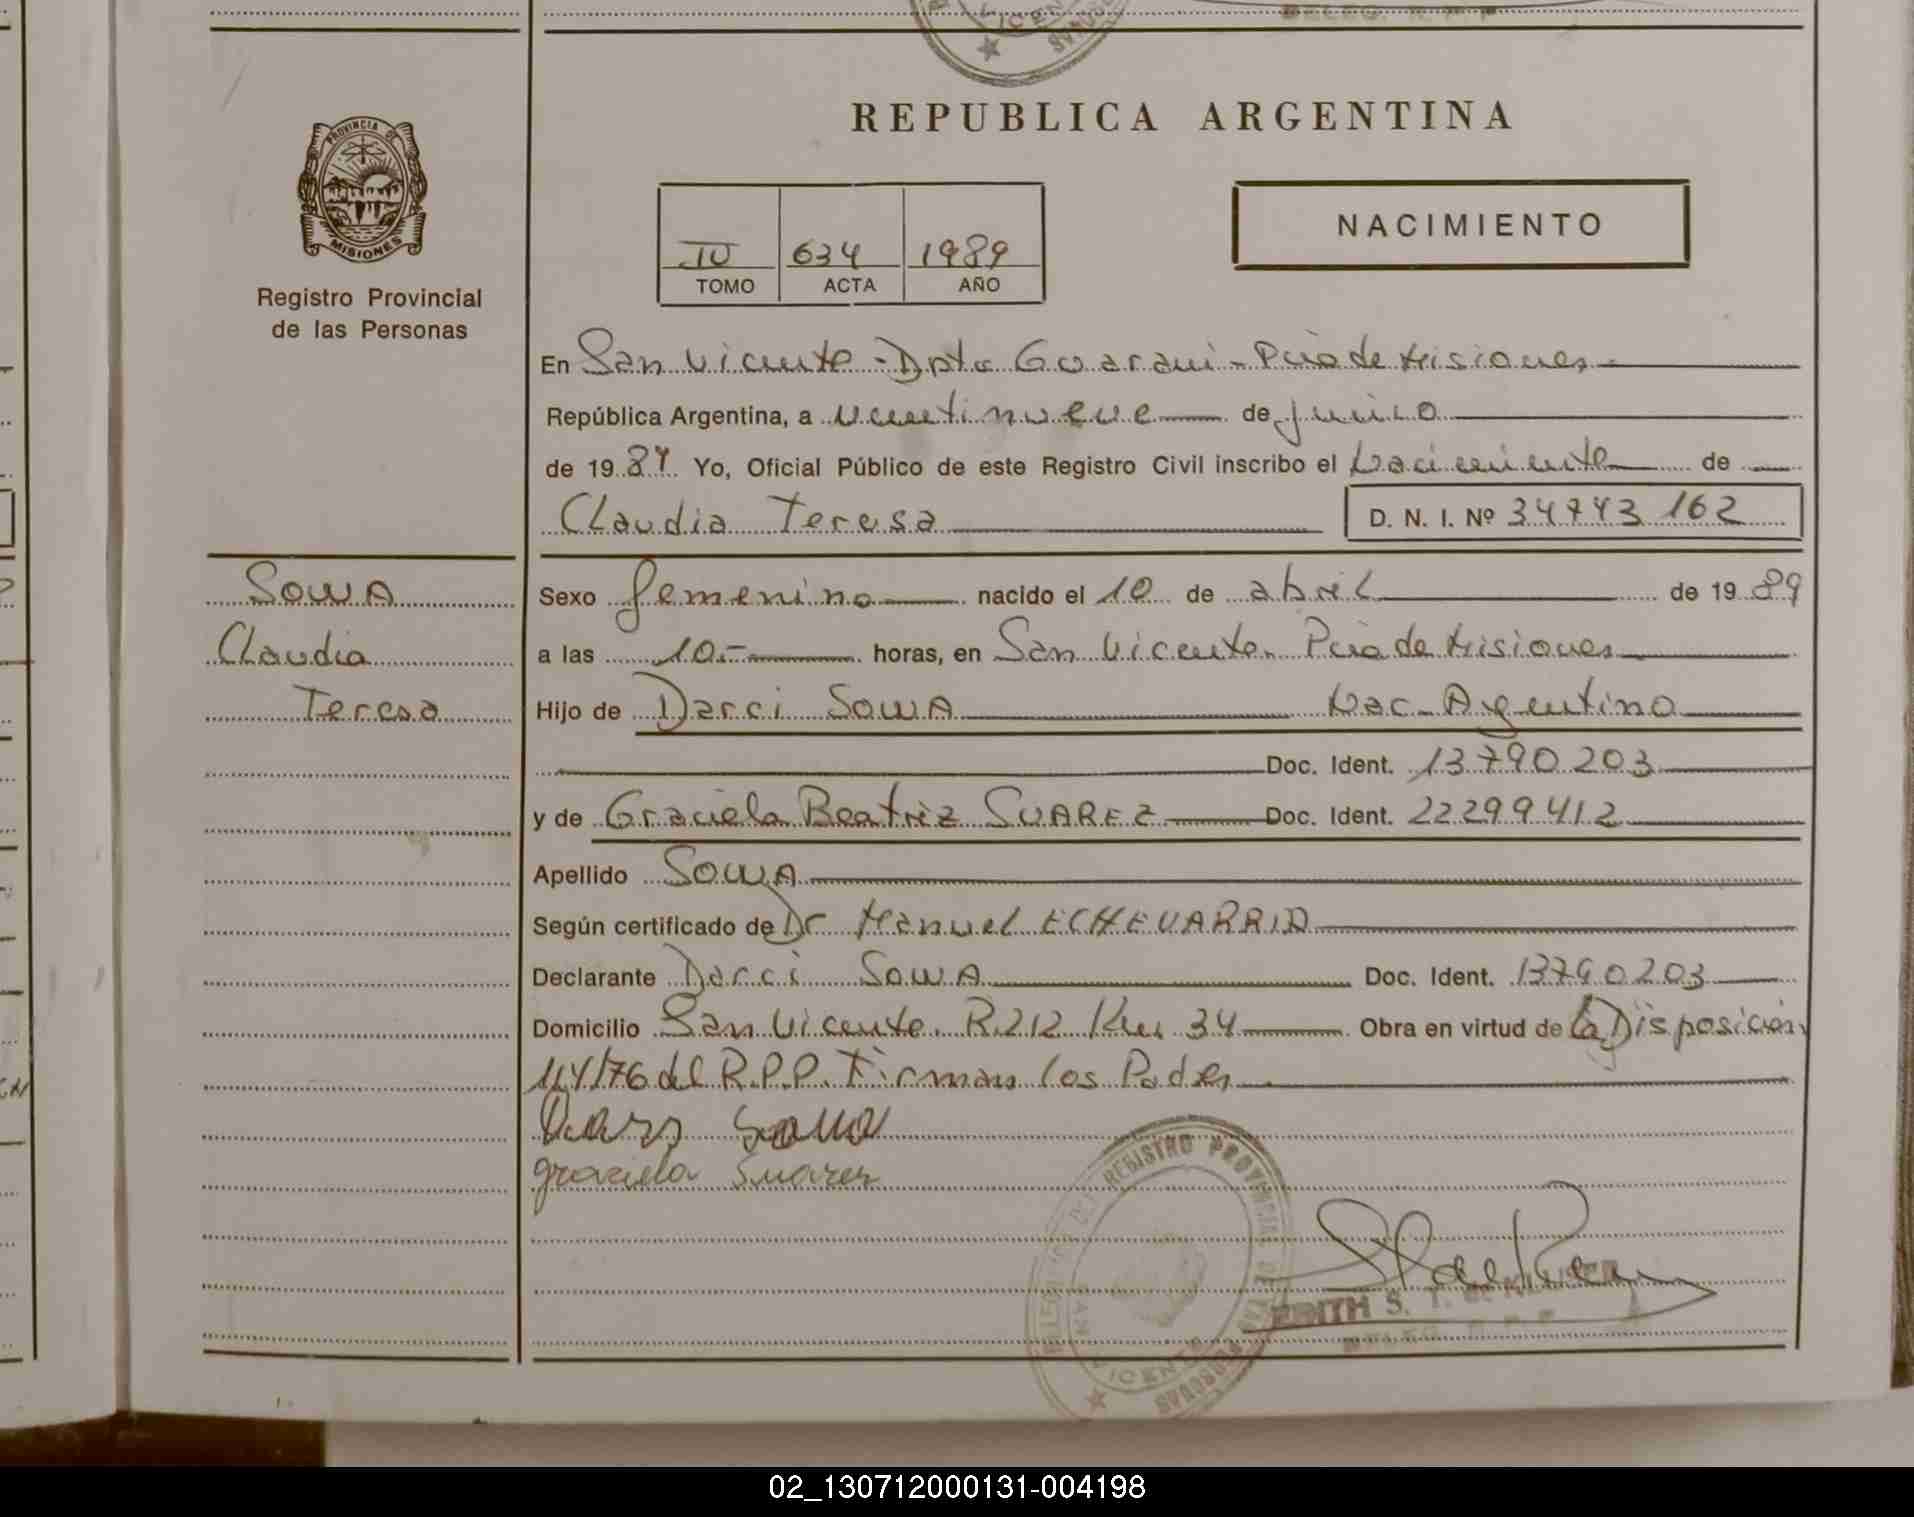 REPUBLICA ARGENTINA
PROVINCIA DE
MISIONES
Registro Provincial
de las Personas
IV 634 1989
TOMO ACTA AÑO
NACIMIENTO
En San Vicente - Dpto Guarani - Pcia de Misiones
República Argentina, a veintinueve de junio
de 1989 Yo, Oficial Público de este Registro Civil inscribo el Nacimiento de
Claudia Teresa D. N. I. Nº 34743162
SOWA
Claudia
Teresa
Sexo femenino nacido el 10 de abril de 1989
a las 10.- horas, en San Vicente. Pcia de Misiones
Hijo de Darci SOWA Nac. Argentino
Doc. Ident. 13790203
y de Graciela Beatriz SUAREZ Doc. Ident. 22299412
Apellido SOWA
Según certificado de Dr Manuel ECHEVARRIA
Declarante Darci SOWA Doc. Ident. 13790203
Domicilio San Vicente. R.212 Km 34 Obra en virtud de la Disposición
114/76 del R.P.P. Firman los Padres
Darci Sowa
graciela Suarez
REGISTRO PROVINCIAL DE LAS PERSONAS
SAN VICENTE
EDITH S. T. DE
DELEG. R. P. P.
02_130712000131-004198